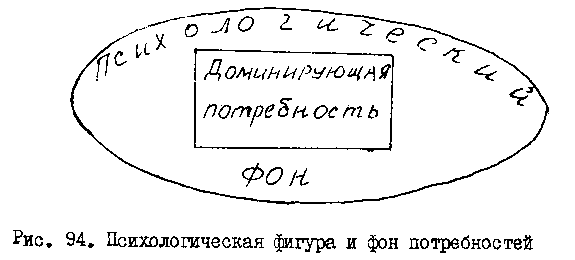 Психологический
Доминирующая
потребность
фон
Рис. 94. Психологическая фигура и фон потребностей